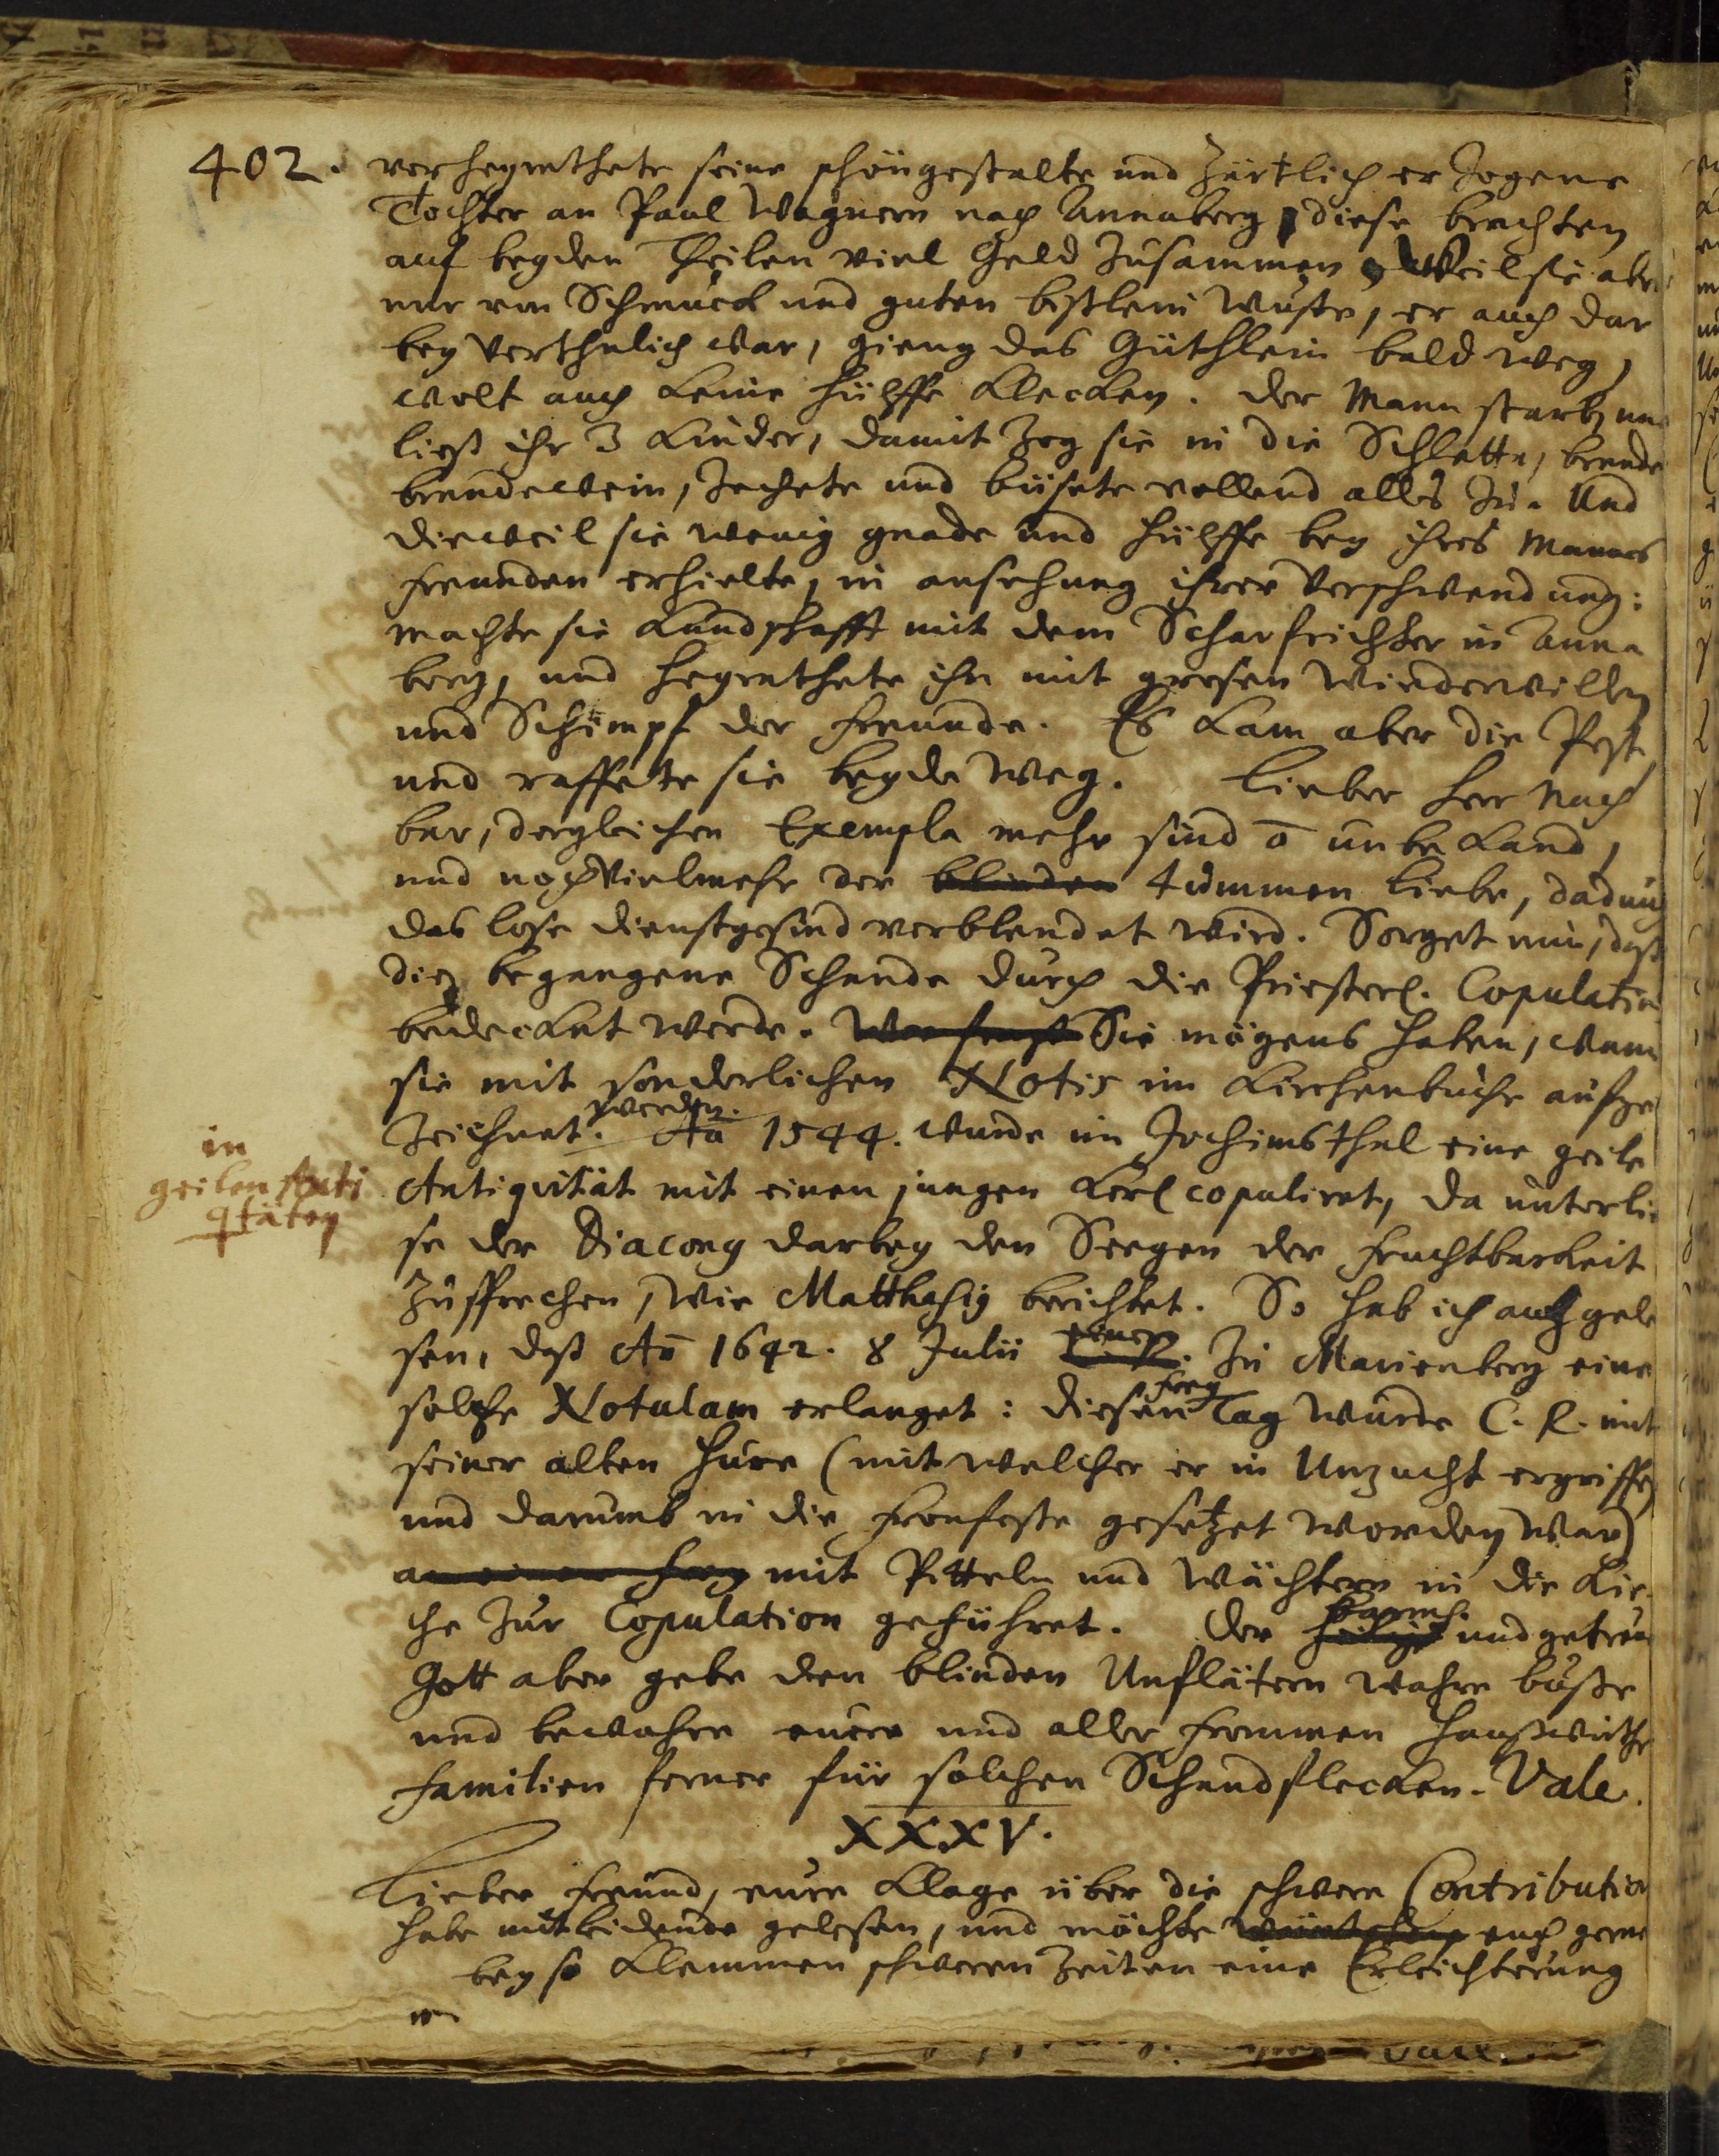 402. verheyrathete seine schöngestalte und zärtlich erzogene
Tochter an Paul Wagnern nach Annaberg, diese brachten
auf beyden Theilen viel Geld zusammen, Weil sie aber
nur von Schmuck und guten bißlein wuste, er auch dar
bey verthulich war, gieng das Güthlein bald weg,
wolt auch keine hülffe klecken. Der Mann starb, und
ließ ihr 3 Kinder, damit zog sie in die Schletta, brande
brandewein, zechete und büsete vollend alles zu. Und
dieweil sie wenig gnade und hülffe bey ihres Mannes
freunden erhielte, in ansehung ihrer Verschwendung:
machte sie Kundschafft mit dem Scharfrichter in Anna
berg, und heyrathete ihn mit grosen Wiederwillen
und Schimpf der freunde. Es kam aber die Pest
und raffete sie beyde weg. Lieber Herr Nach
bar, dergleichen Exempla mehr sind ō unbekand,
und noch vielmehr der blinden tummen Liebe, dadurch
das lose dienstgesind verblendet wird. Sorget nur, daß
die begangene Schande durch die Priesterl. Copulation
bedecket werde. Sie mögens haben, wann
sie mit sonderlichen Notis im Kirchenbuche aufge
zeichnet werden. Aō 1544. wurde im Jochimsthal eine geile
in
geilen Anti
qtäten
Antiqvität mit einen jungen Kerl copuliret, da unterlie
se der Diacong darbey den Seegen der fruchtbarkeit
zusprechen, wie Matthesig berichtet. So hab ich auch gele
sen, daß Aō 1642. 8 Julii einer zu Marienberg eine
solche Notulam erlanget: diesen freytag wurde C. K. mit
seiner alten Hure (mit welcher er in Unzucht ergriffen
und darumb in die fronfeste gesetzet worden war)
an einem frey mit Pitteln und Wächtern in die Kir
che zur Copulation geführet. Der heilige barmh. und getreue
Gott aber gebe den blinden Unflätern wahre buße
und bewahre eure und aller frommen Haußwirthe
familien ferner für solchen Schandflecken. Vale.
XXXV.
Lieber freund, eure Klage über die schwere Contribution
habe mitleidende gelesen, und möchte wüntschen euch gerne
bey so klemmen schweren Zeiten eine Erleichterung